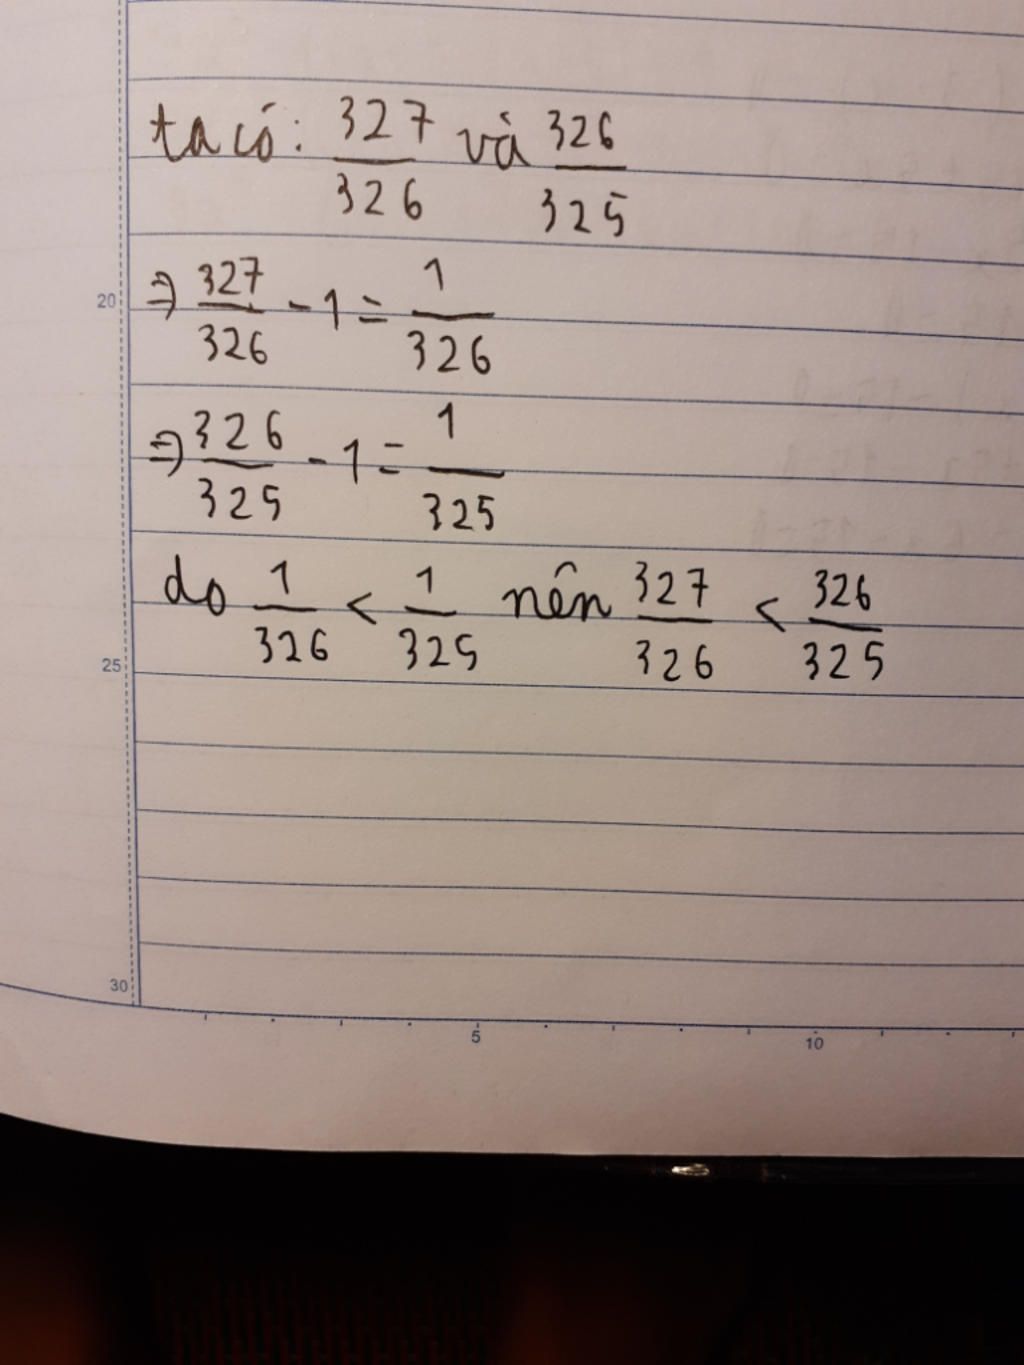 ta có: 327/326 và 326/325
20 ⇒ 327/326 - 1 = 1/326
⇒ 326/325 - 1 = 1/325
do 1/326 < 1/325 nên 327/326 < 326/325
25
30
5 10